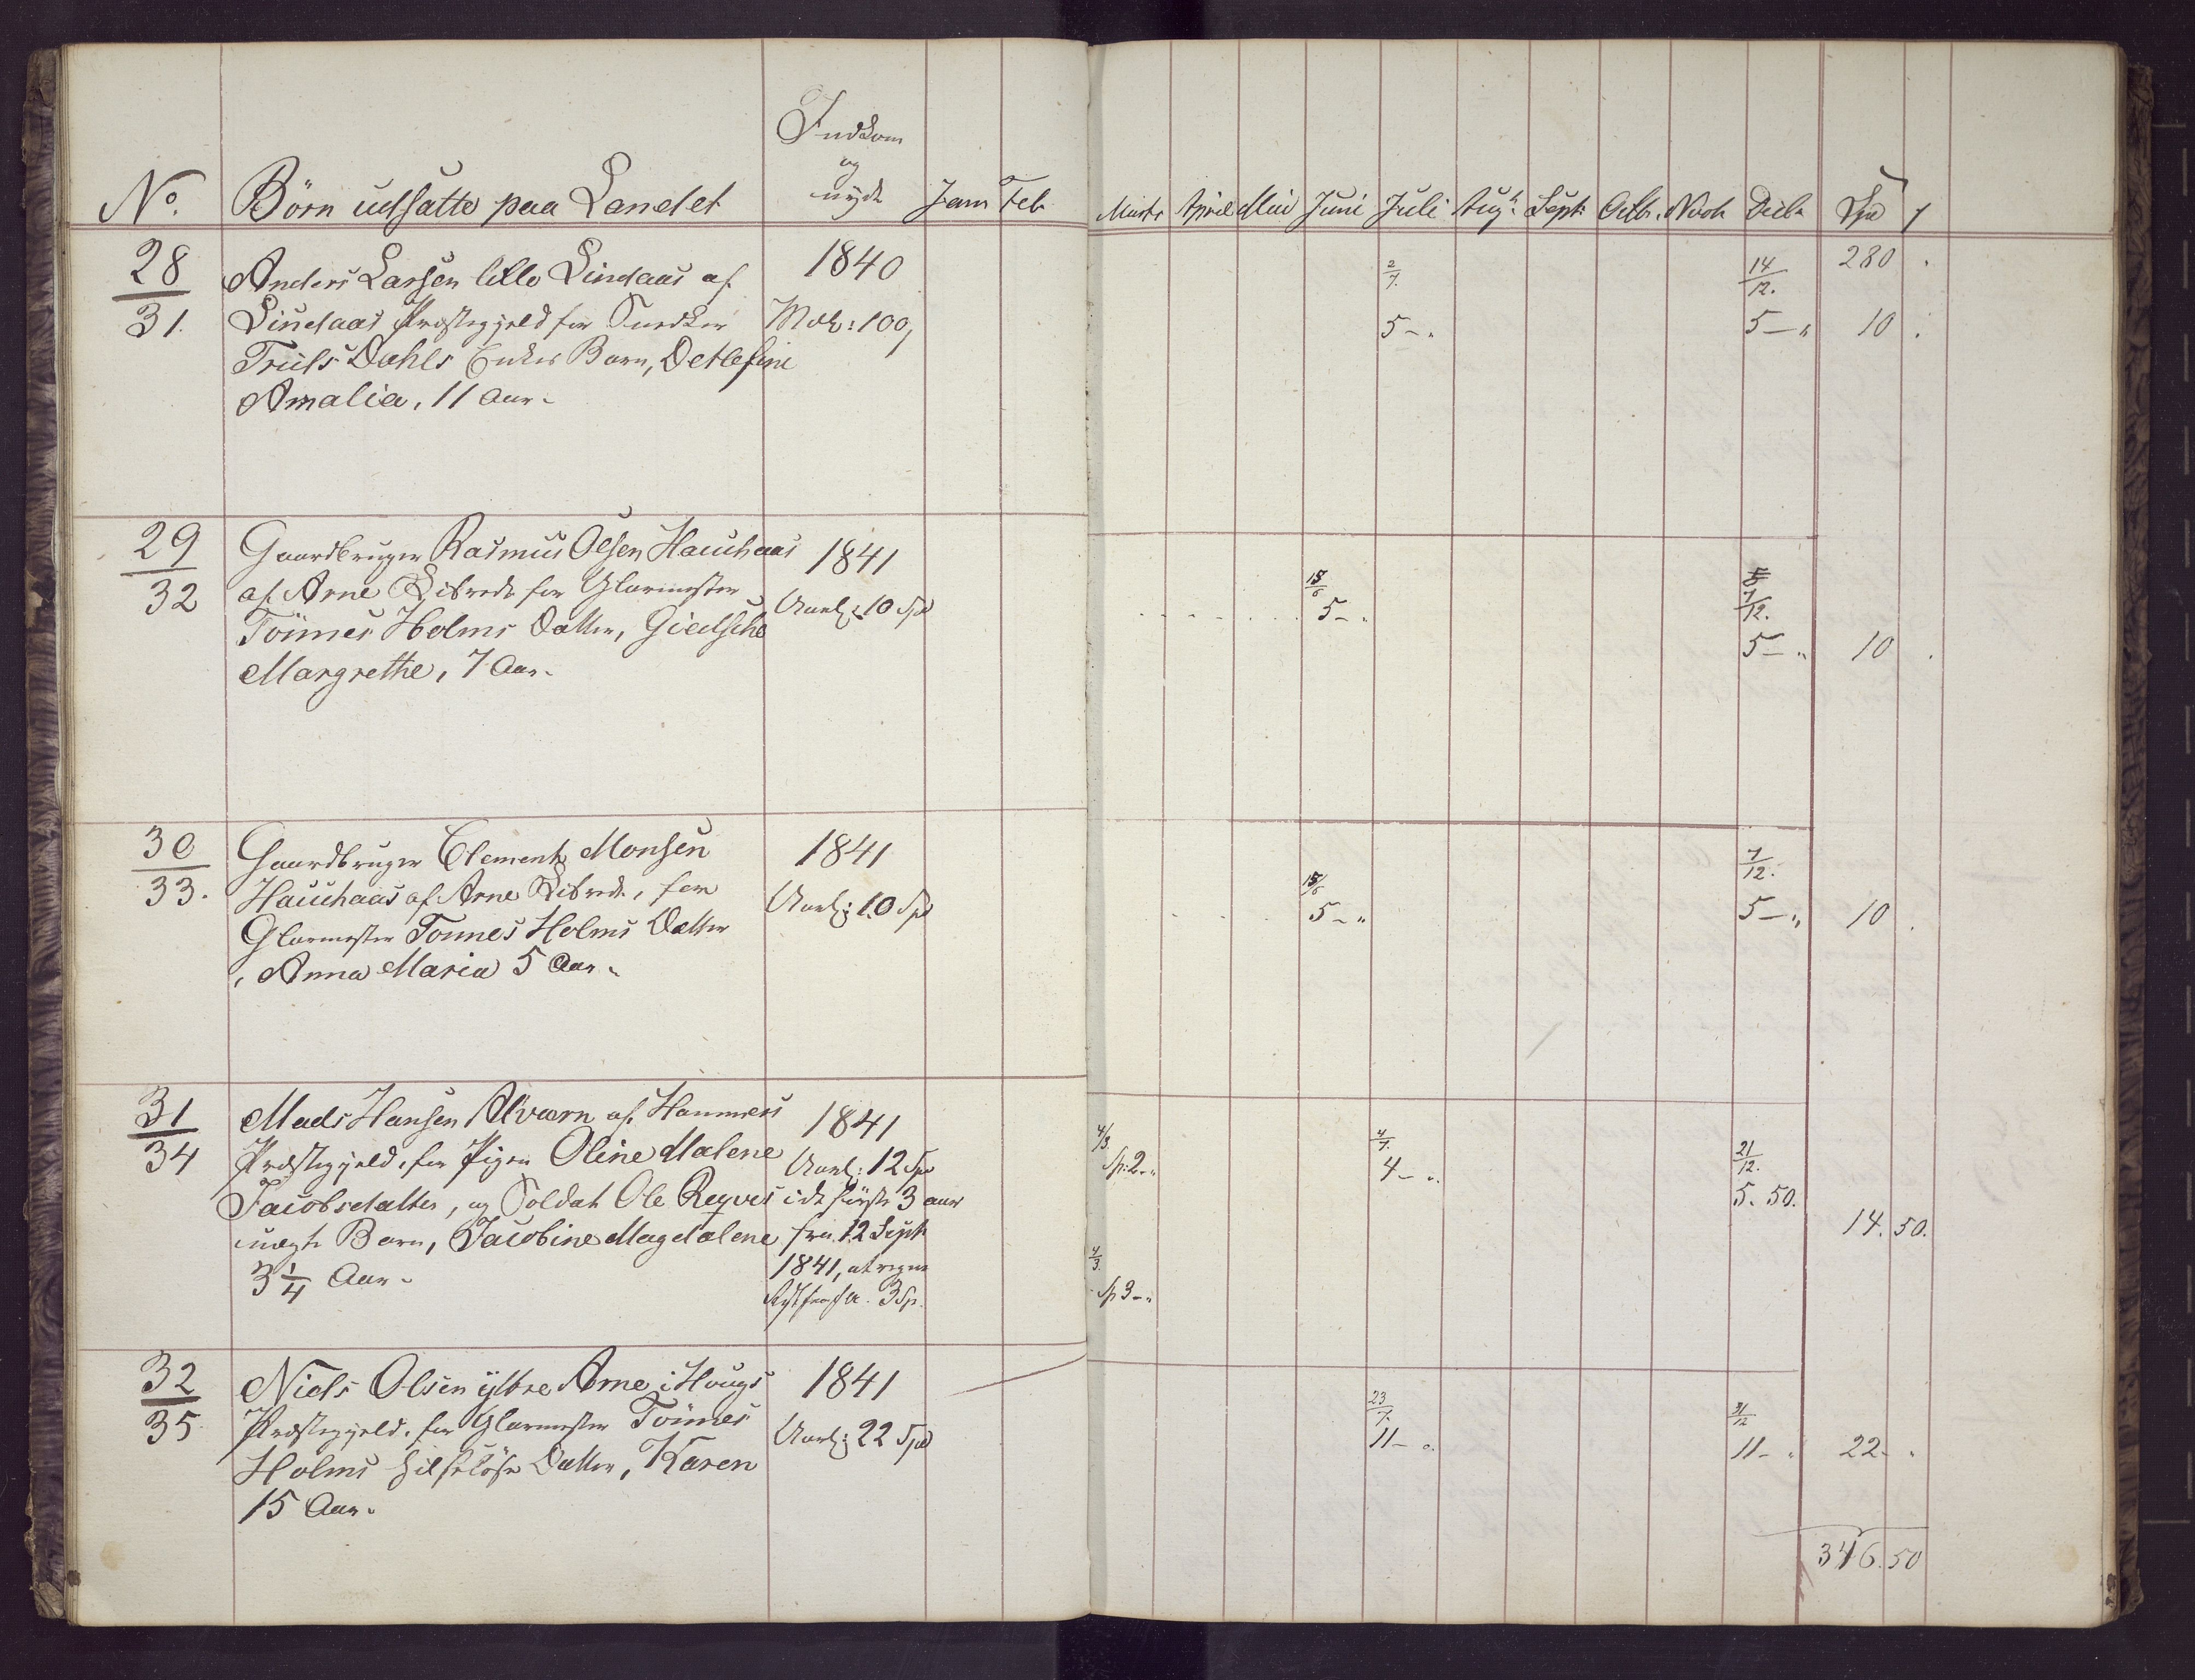 Indkom
og
nyde
No. Börn udsatte paa Landet Janr Feb Marts April Mai Juni Juli Augt Septr Octbr. Novbr Decbr Spd
28 Anders Larsen lille Lindaas af 1840 2/7. 14/12. 280 .
31. Lindaas Præstegjeld for Snedker Mdl: 100, 5 - " 5 - " 10 .
Truls Dahls Enkes Barn, Detlefine
Amalia, 11 Aar.
29 Gaardbruger Rasmus Olsen Hauchaas 1841 15/6 7/12.
32 af Arne Skibrede for Glarmester Aarl: 10 Spd 5 - " 5 - " 10 .
Tönnes Holms Datter, Gielsche
Margrethe, 7 Aar.
30 Gaardbruger Clement Monsen 1841 15/6 7/12.
33. Hauchaas af Arne Skibrede, for Aarl: 10 Spd 5 - " 5 - " 10 .
Glarmester Tonnes Holms Datter
, Anna Maria 5 Aar.
31 Mads Hansen Alværn af Hammers 1841 4/3. 4/7. 21/12.
34 Præstegjeld, for Pigen Oline Malene Aarl: 12 Spd Sp: 2 - " 4 - " 5. 50. 14. 50.
Jacobsdatter, og Soldat Ole Reyves i de första 3 aar
uægte Barn, Jacobine Magdalene fra 12 Septr 4/3.
3 1/4 Aar. 1841, at regne
3 Sp. Sp 3 - "
32 Niels Olsen ÿtre Arne i Hougs 1841 23/7. 31/12
35 Præstegjeld, for Glarmester Tönnes Aarl: 22 Spd 11 - " 11 - " 22 - "
Holms hilselöse Datter, Karen
15 Aar.
346. 50